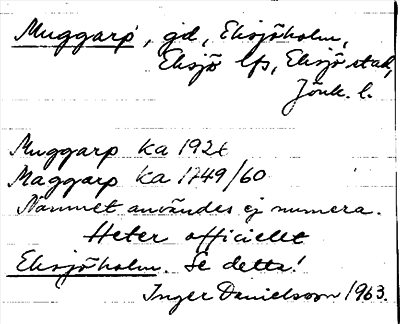 Muggarp, gd, Eksjöholm,
Eksjö lfs, Eksjö stad,
Jönk. l.
Muggarp ka 192
Maggarp ka 1749/60
Namnet användes ej numera.
Heter officiellt
Eksjöholm. Se detta!
Inger Danielsson 1963.